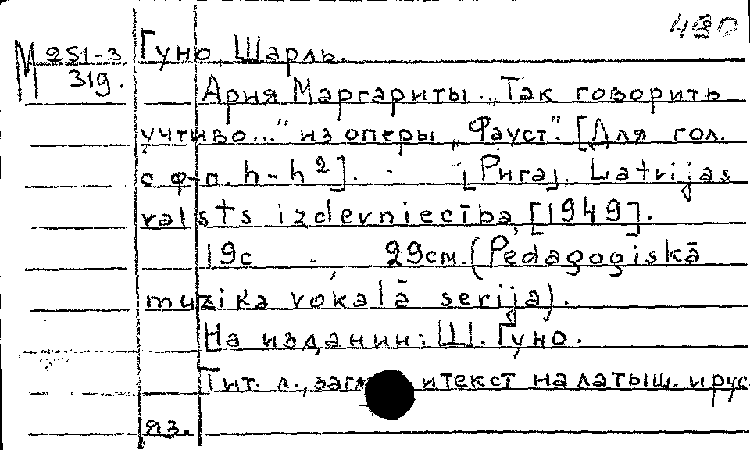 430
М 251-3 Гуно, Шарль.
319. Ария Маргариты. „Так говорить
учтиво..." из оперы „Фауст". [Для гол.
с ф-п. h-h²]. [Рига]. Latvijas
valsts izdevniecība, [1949].
19с 29см. (Pedagogiskā
muzika vokalā serija).
На издании: Ш. Гуно.
Тит. л., загл. и текст на латыш. и рус.
яз.